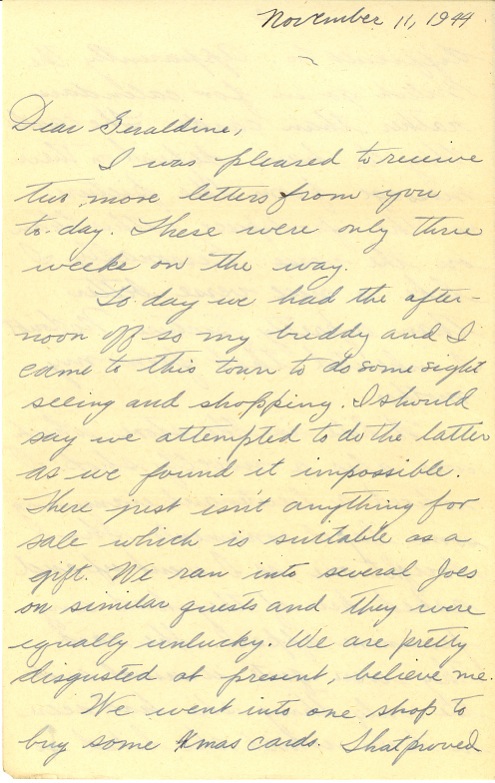 November 11, 1944
Dear Geraldine,
I was pleased to receive
two more letters from you
to-day. These were only three
weeks on the way.
To-day we had the after-
noon off so my buddy and I
came to this town to do some sight
seeing and shopping. I should
say we attempted to do the latter
as we found it impossible.
There just isn't anything for
sale which is suitable as a
gift. We ran into several Joes
on similar quests and they were
equally unlucky. We are pretty
disgusted at present, believe me.
We went into one shop to
buy some Xmas cards. That proved